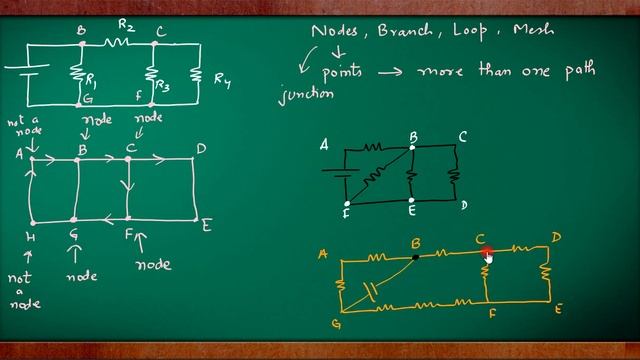 Nodes, Branch, Loop, Mesh
points → more than one path
junction
R2
B
C
R1
R3
R4
G
F
not a node
node
node
A
B
C
D
H
G
F
E
not a node
node
node
A
B
C
F
E
D
A
B
C
D
G
F
E